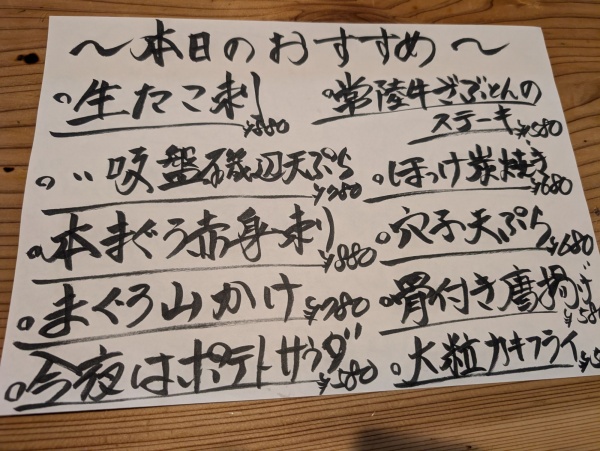 ～本日のおすすめ～
○生たこ刺 ¥880
○〃吸盤磯辺天ぷら ¥780
○本まぐろ赤身刺 ¥880
○まぐろ山かけ ¥780
○今夜はポテトサラダ ¥580
○常陸牛ざぶとんの
ステーキ ¥1580
○ほっけ炭焼き ¥680
○穴子天ぷら ¥680
○骨付き唐揚げ ¥580
○大粒カキフライ